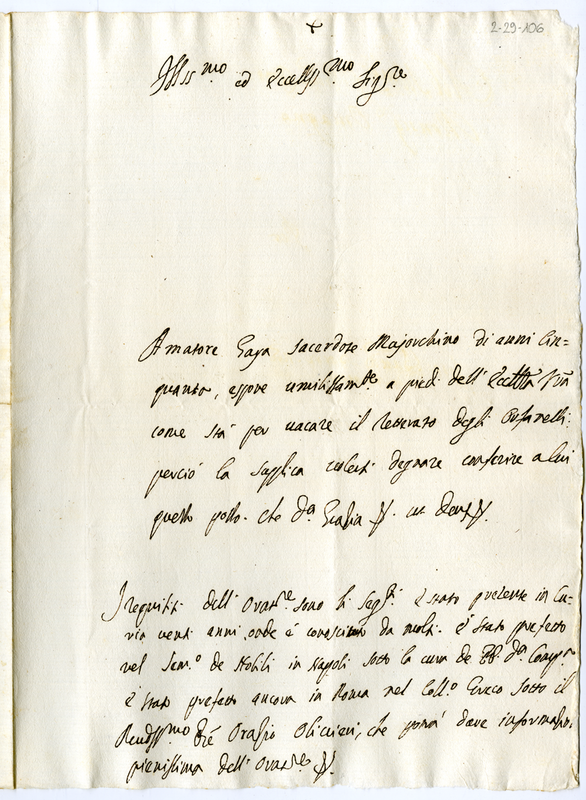 2-29-106
Illss.mo ed Eccellss.mo Sig.re
Amatore Gaya Sacerdote Majorchino di anni Cin=
quanta, espone umilissam.te a piedi dell' Eccttta Vra
come stà per vacare il letterato degli Orfanelli:
perciò la supplica volersi degnare conferire a lui
quello posto. che d.a Grazia
I requisiti dell' Orat.re sono li seg.ti è stato presente in Cu-
ria venti anni, onde è conosciuto da molti. è stato prefetto
nel Sem.o de Nobili in Napoli sotto la cura de PP. d.a Comp.a
è stato prefetto ancora in Roma nel Coll.o Greco sotto il
Rendss.mo Pre Orazio Olivieri, che potrà dare informaz.
pienissima dell' Orat.re